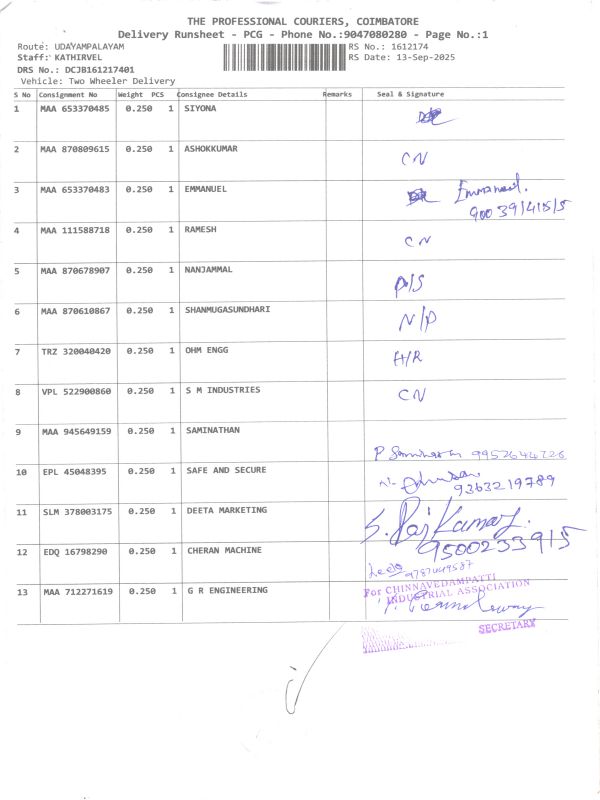 THE PROFESSIONAL COURIERS, COIMBATORE
Delivery Runsheet - PCG - Phone No.:9047080280 - Page No.:1
Route: UDAYAMPALAYAM RS No.: 1612174
Staff: KATHIRVEL RS Date: 13-Sep-2025
DRS No.: DCJB161217401
Vehicle: Two Wheeler Delivery
S No Consignment No Weight PCS Consignee Details Remarks Seal & Signature
1 MAA 653370485 0.250 1 SIYONA
2 MAA 870809615 0.250 1 ASHOKKUMAR CN
3 MAA 653370483 0.250 1 EMMANUEL Emmanuel.
9003914115
4 MAA 111588718 0.250 1 RAMESH CN
5 MAA 870678907 0.250 1 NANJAMMAL P/S
6 MAA 870610867 0.250 1 SHANMUGASUNDHARI N/P
7 TRZ 320040420 0.250 1 OHM ENGG H/R
8 VPL 522900860 0.250 1 S M INDUSTRIES CN
9 MAA 945649159 0.250 1 SAMINATHAN
9952644726
10 EPL 45048395 0.250 1 SAFE AND SECURE
9363219789
11 SLM 378003175 0.250 1 DEETA MARKETING S. Raj Kumar
9500233915
12 EDQ 16798290 0.250 1 CHERAN MACHINE
13 MAA 712271619 0.250 1 G R ENGINEERING
For CHINNAVEDAMPATTI
INDUSTRIAL ASSOCIATION
SECRETARY